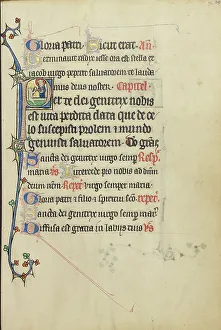 Gloria patri. Sicut erat. An
Germinavit radix iesse orta est stella ex
iacob virgo peperit salvatorem te lauda
mus deus noster. Capitel
Per te dei genitrix nobis
est vita perdita data que de ce
lo suscepisti prolem et mundo
genuisti salvatorem. Deo gras
Sancta dei genitrix virgo semp Resp
maria ps Intercede pro nobis ad dom
deum nrm Reper virgo semper maria
Gloria patri et filio et spiritui sco reper
Sancta dei genitrix virgo semp mar
Diffusa est gratia in labiis tuis ps